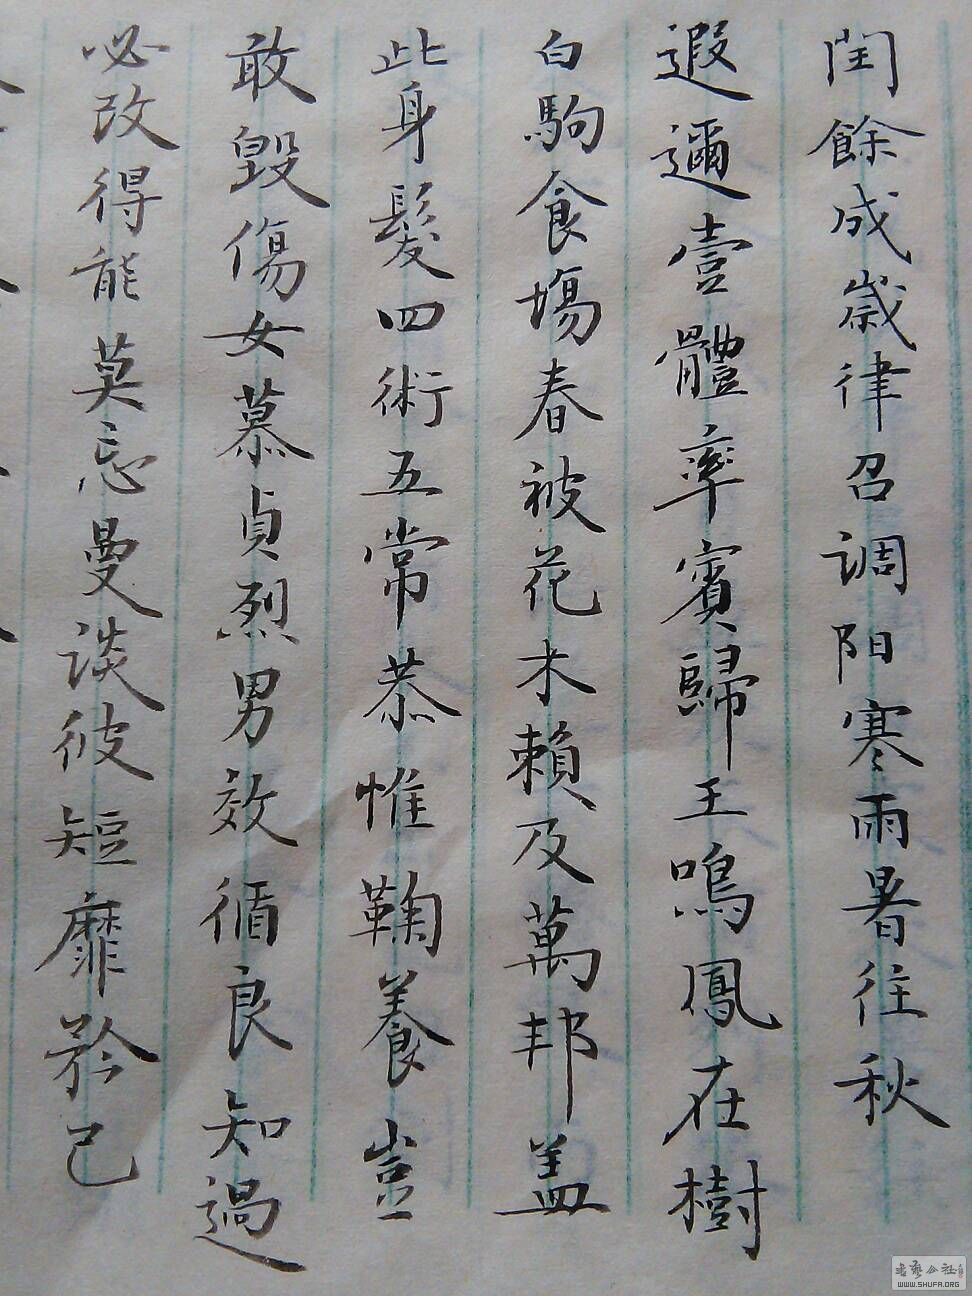 闰餘成歲律召调阳寒雨暑往秋
遐邇壹體率賓歸王鳴鳳在樹
白駒食塲春被花木賴及萬邦盖
此身髮四術五常恭惟鞠養豈
敢毀傷女慕貞烈男效循良知過
必改得能莫忘曼谈彼短靡矜己
WWW.SHUFA.ORG